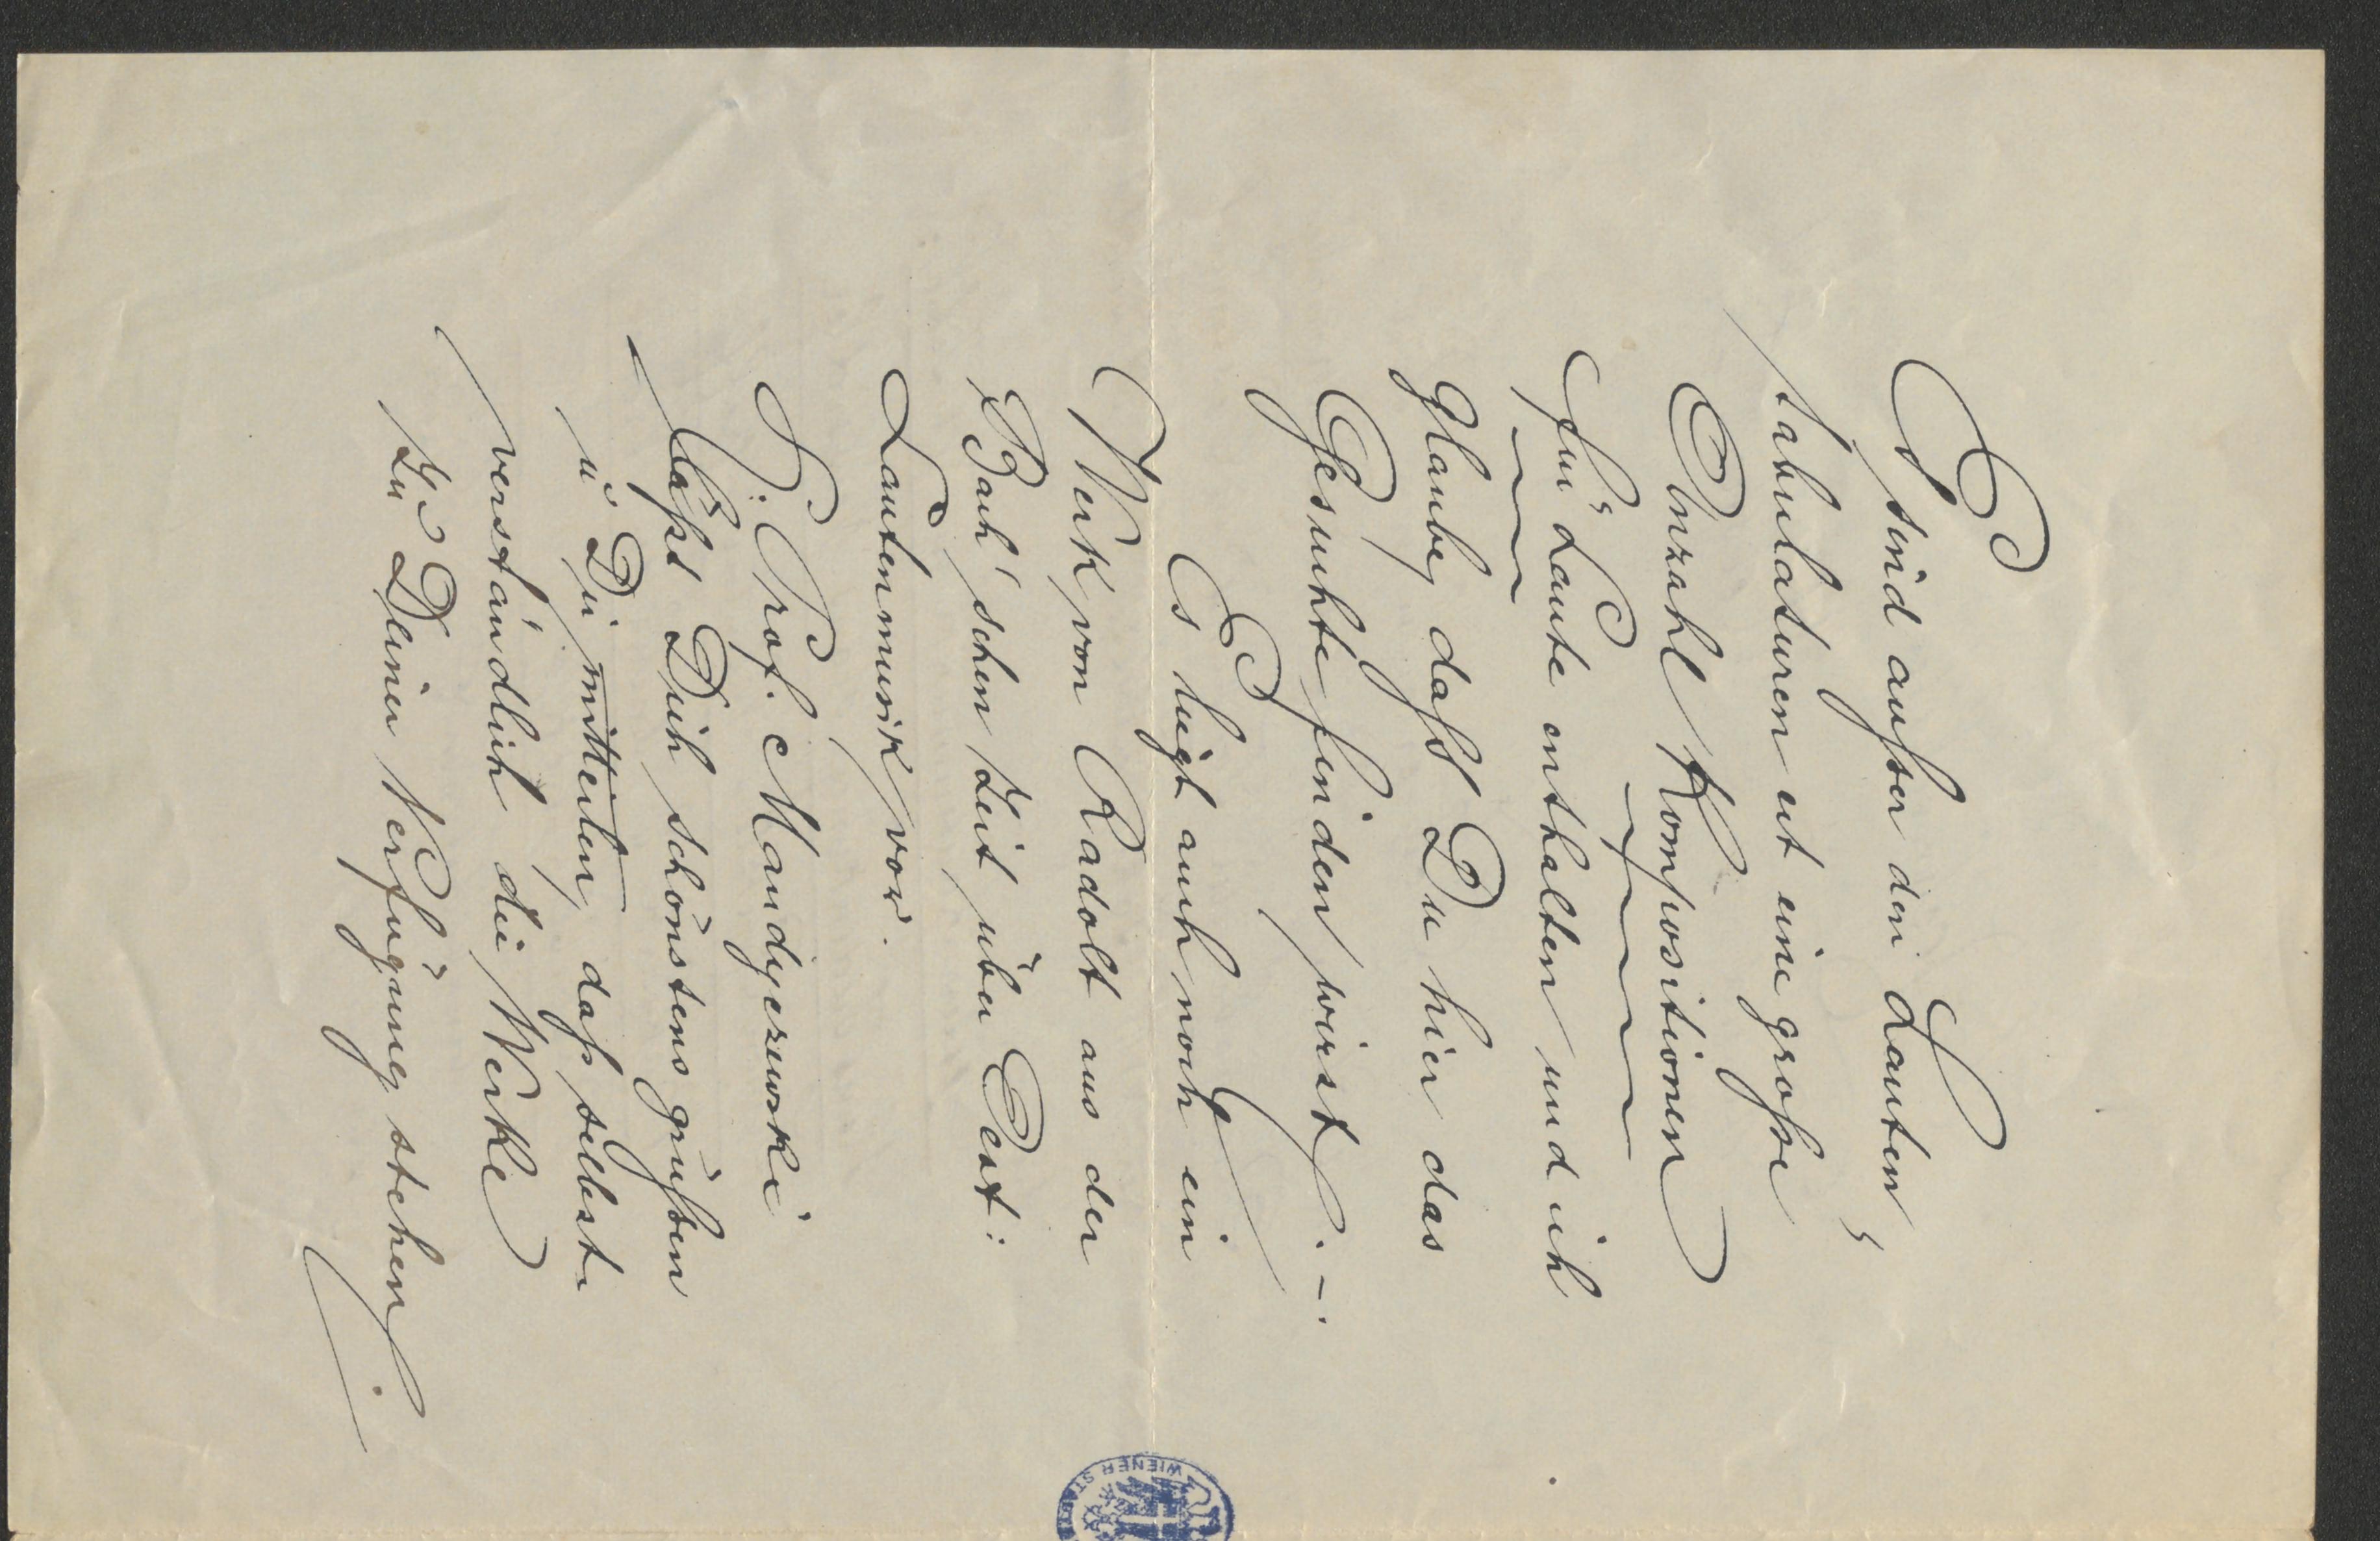 Es sind außer den Lauten„
tabulaturen ect eine große
Anzahl Kompositionen
für Laute enthalten und ich
glaube, daß Du hier das
Gesuchte finden wirst. –.
Es liegt auch noch ein
Werk von Radolt aus der
Bach'schen Zeit über
Lautenmusik vor.
H. Prof. Mandyczewski
läßt Dich schönstens grüßen
u Dir mitteilen, daß selbst„
verständlich die Werke
zu Deiner Verfügung stehen.
WIENER STADT